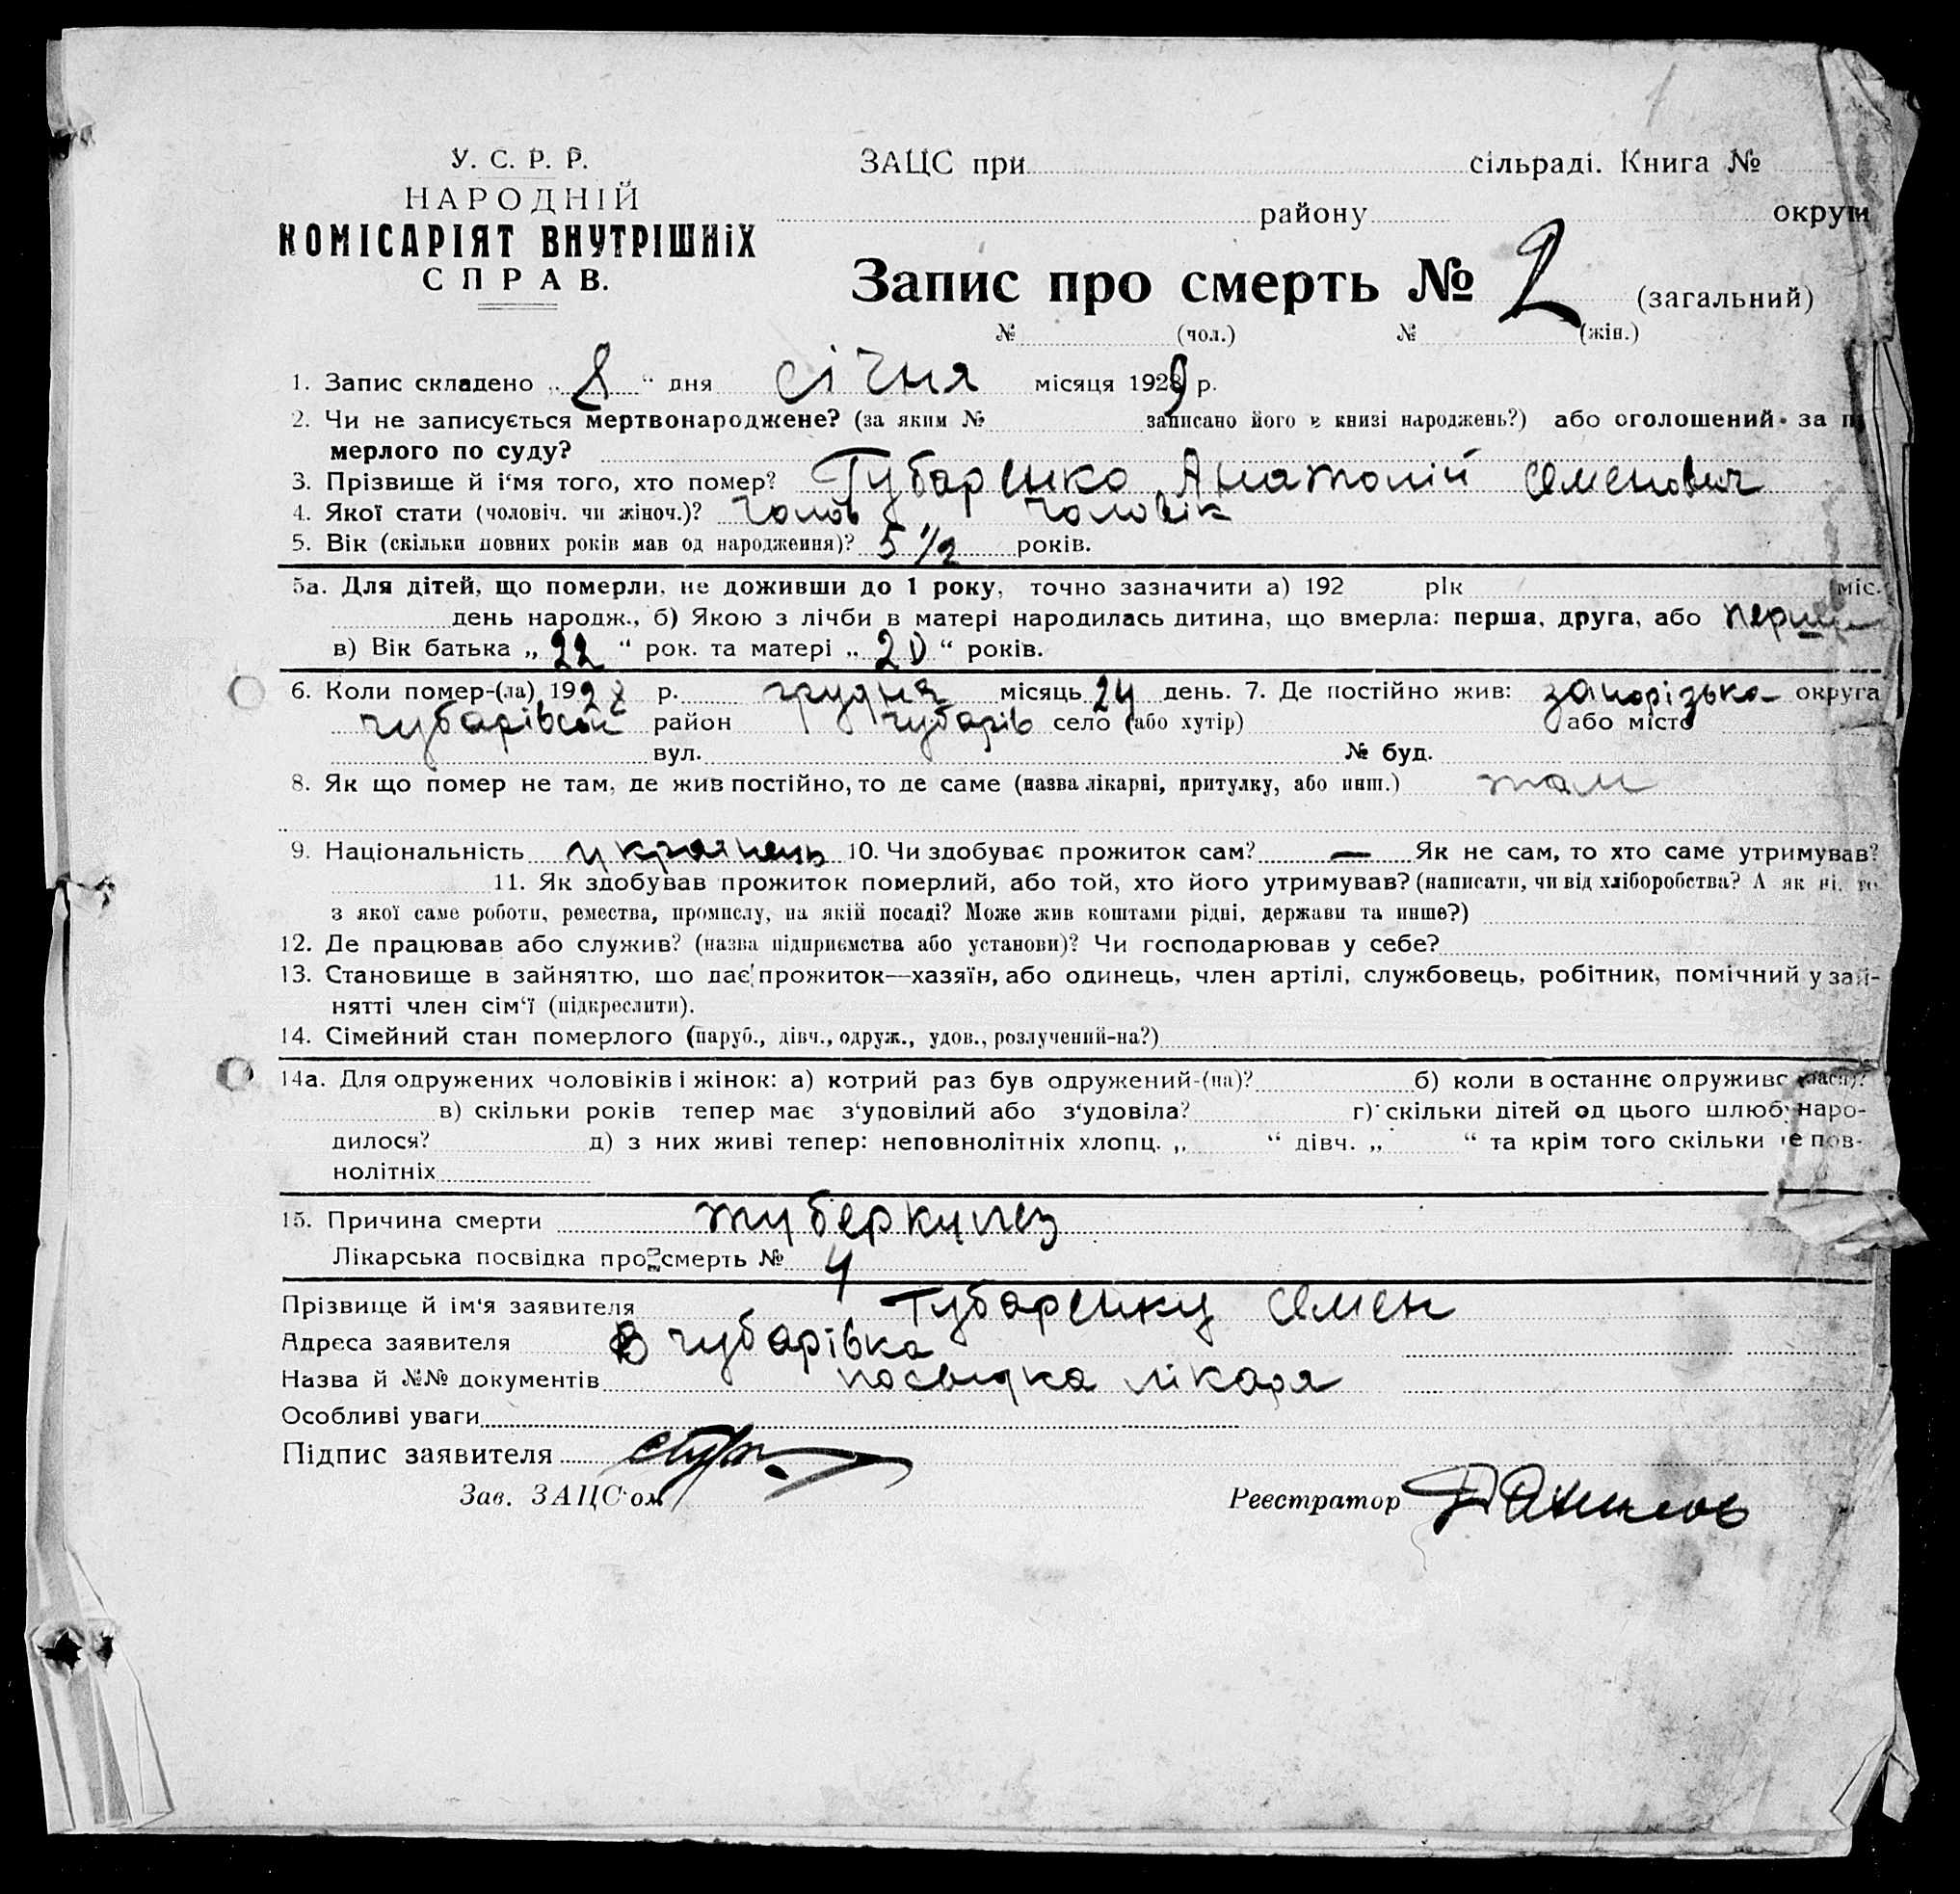 У. С. Р. Р.
НАРОДНІЙ
КОМІСАРІЯТ ВНУТРІШНІХ
СПРАВ.
ЗАЦС при сільраді. Книга №
району округи
Запис про смерть № 2 (загальний)
№ (чол.) № (жін.)
1. Запис складено „ 8 “ дня січня місяця 1929 р.
2. Чи не записується мертвонароджене? (за яким № записано його в книзі народжень?) або оголошений за п
мерлого по суду?
3. Прізвище й і‘мя того, хто помер? Губаренко Анатолій Семенович
4. Якої стати (чоловіч. чи жіноч.)? чолов чоловік
5. Вік (скільки повних років мав од народження)? 5 1/2 років.
5а. Для дітей, що померли, не доживши до 1 року, точно зазначити а) 192 рік міс.
день народж., б) Якою з лічби в матері народилась дитина, що вмерла: перша, друга, або перша
в) Вік батька „ 22 “ рок. та матері „ 20 “ років.
6. Коли помер-(ла) 1928 р. грудня місяць 24 день. 7. Де постійно жив: запорізька округа
чубарівськ район чубарів село (або хутір) або місто
вул. № буд.
8. Як що помер не там, де жив постійно, то де саме (назва лікарні, притулку, або инш.) там
9. Національність українець 10. Чи здобуває прожиток сам? — Як не сам, то хто саме утримував?
11. Як здобував прожиток померлий, або той, хто його утримував? (написати, чи від хліборобства? А як ні, то
з якої саме роботи, ремества, промислу, на якій посаді? Може жив коштами рідні, держави та инше?)
12. Де працював або служив? (назва підприємства або установи)? Чи господарював у себе?
13. Становище в зайняттю, що дає прожиток—хазяїн, або одинець, член артілі, службовець, робітник, помічний у зай-
нятті член сім‘ї (підкреслити).
14. Сімейний стан померлого (паруб., дівч., одруж., удов., розлучений-на?)
14а. Для одружених чоловіків і жінок: а) котрий раз був одружений-(на)? б) коли в останнє одруживс (лася)?
в) скільки років тепер має з‘удовілий або з‘удовіла? г) скільки дітей од цього шлюбу наро-
дилося? д) з них живі тепер: неповнолітніх хлопц. „ “ дівч. „ “ та крім того скільки не пов-
нолітніх
15. Причина смерти туберкулез
Лікарська посвідка про смерть № 4
Прізвище й ім‘я заявителя Губаренку Семен
Адреса заявителя В чубарівка
Назва й №№ документів посвидка лікаря
Особливі уваги
Підпис заявителя
Зав. ЗАЦС‘ом Реєстратор Данилов